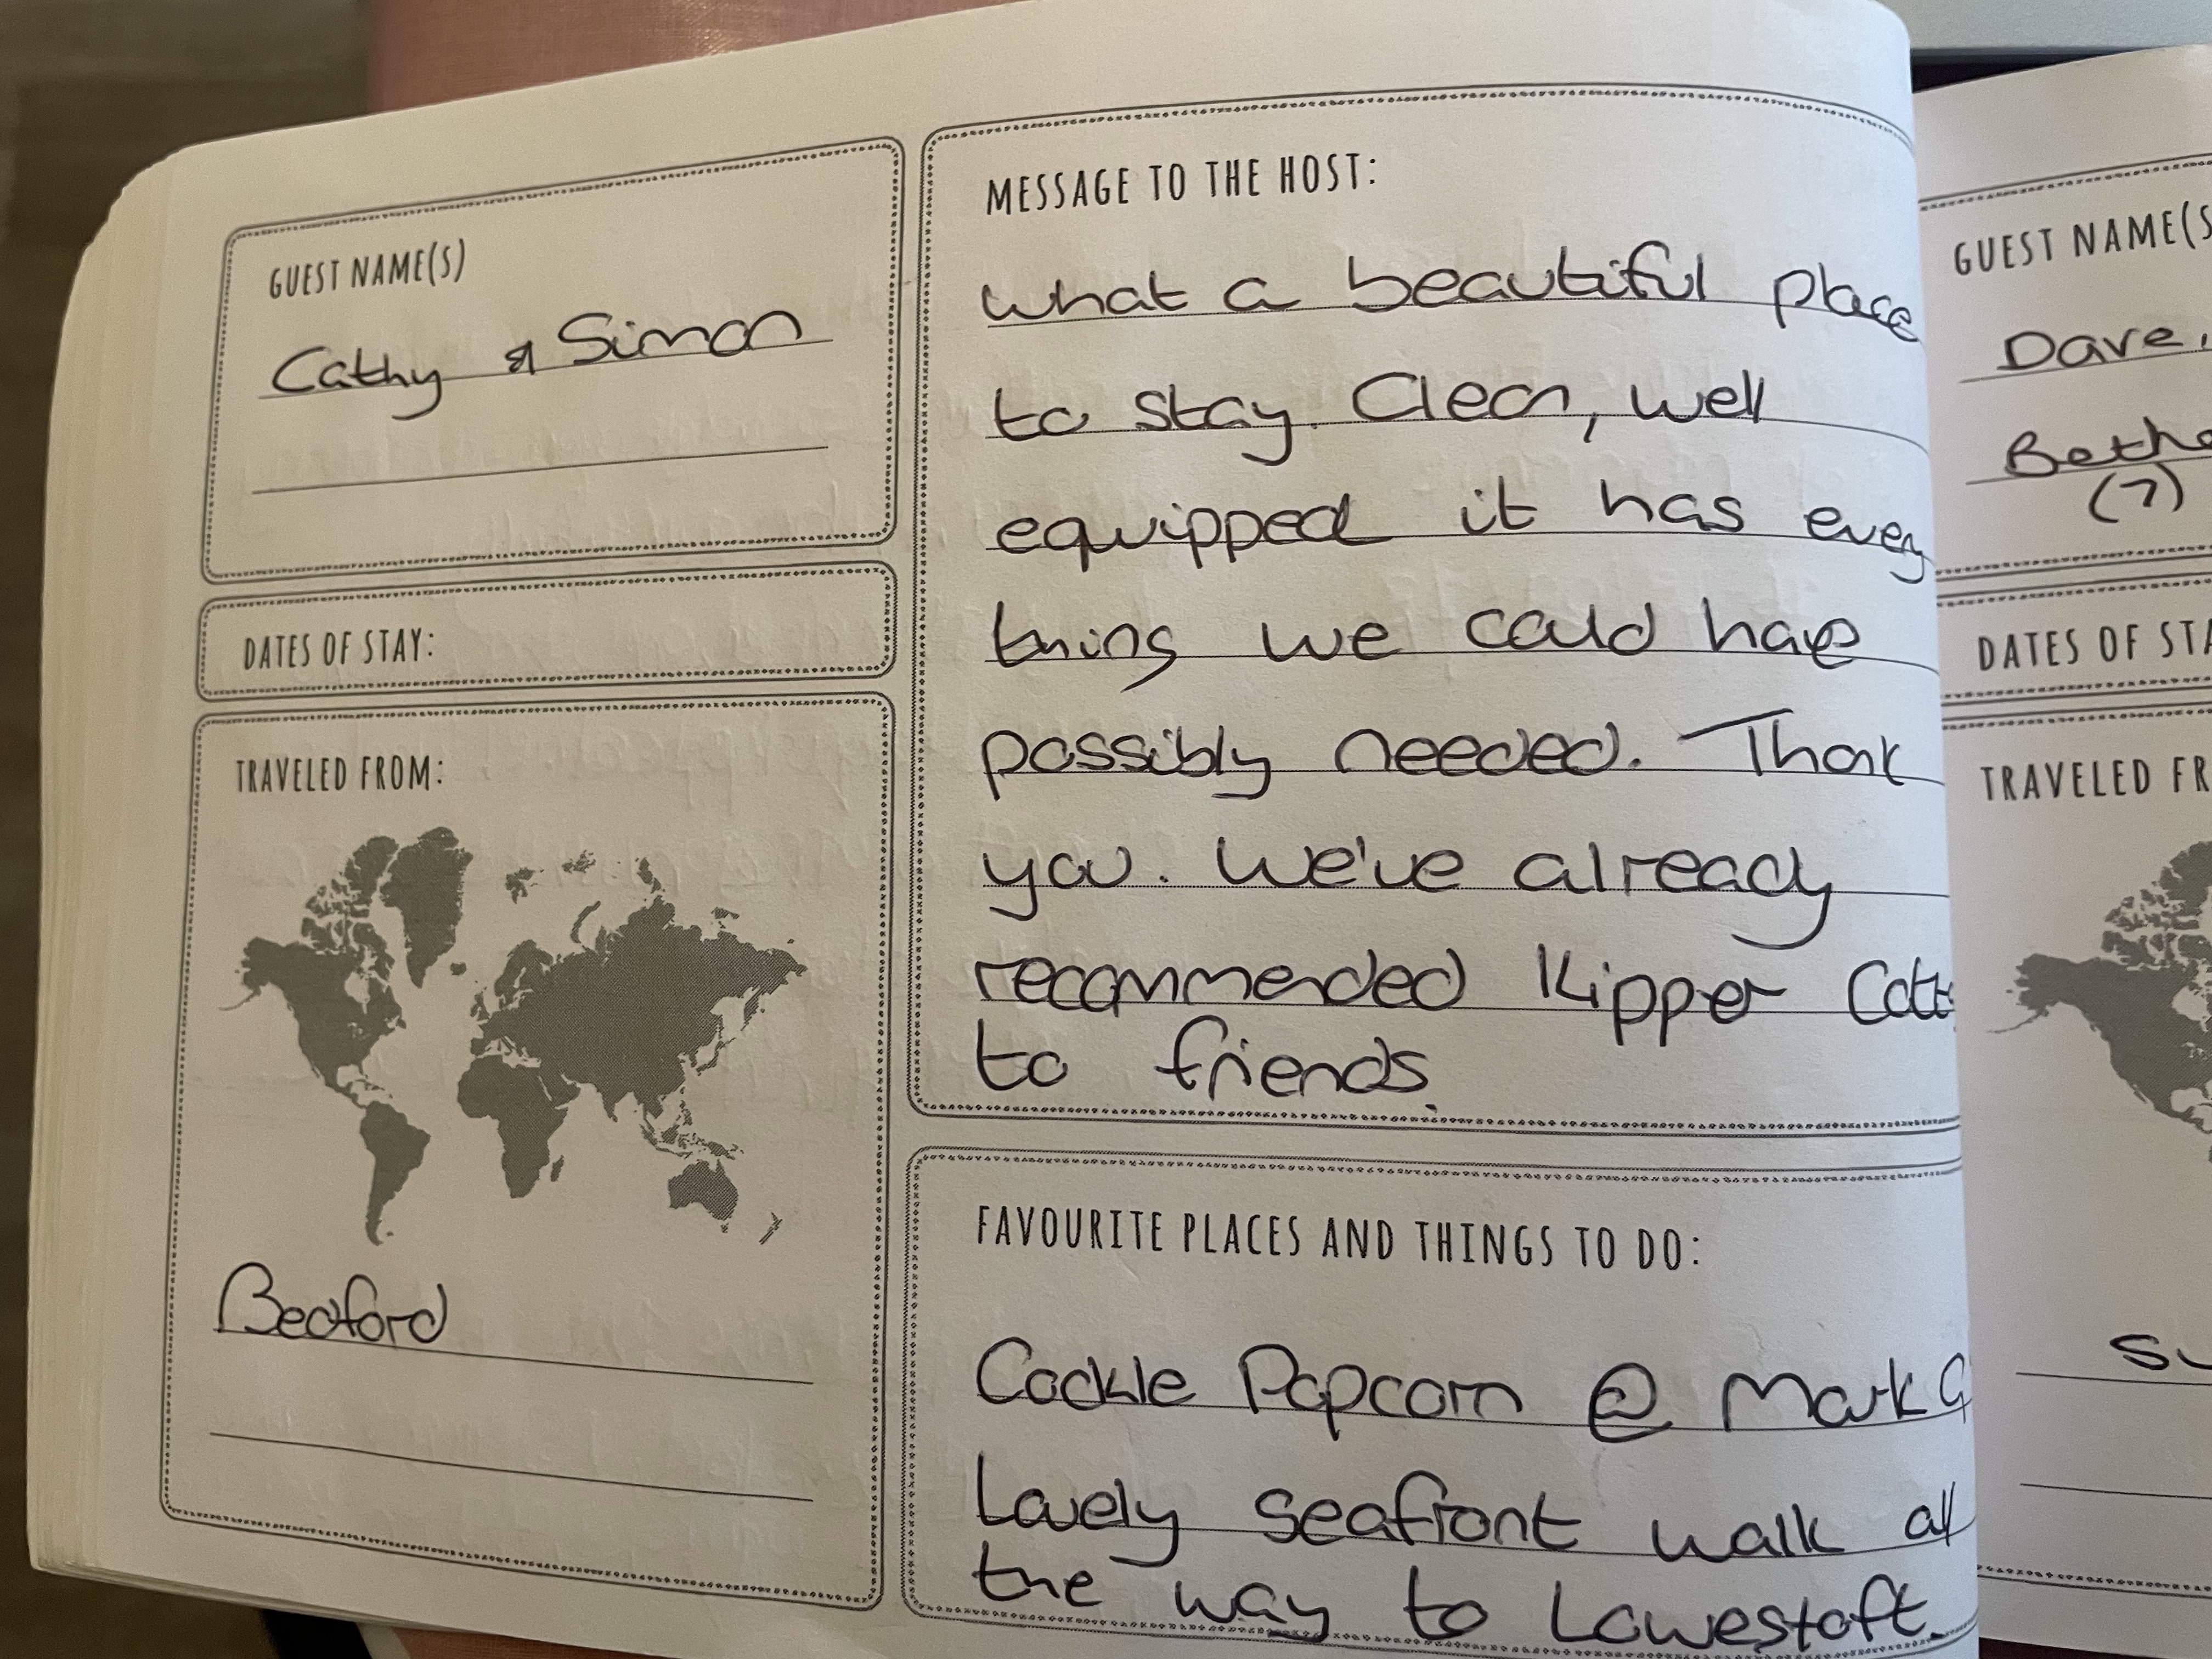 GUEST NAME(S)
Cathy & Simon
DATES OF STAY:
TRAVELED FROM:
Bedford
MESSAGE TO THE HOST:
What a beautiful place
to stay. Clean, well
equipped it has every
thing we could have
possibly needed. Thank
you. We've already
recommended Kipper
to friends.
FAVOURITE PLACES AND THINGS TO DO:
Cockle Popcorn @ Mark G
Lovely seafront walk all
the way to Lowestoft.
GUEST NAME(S
Dave,
(7)
DATES OF STA
TRAVELED FR